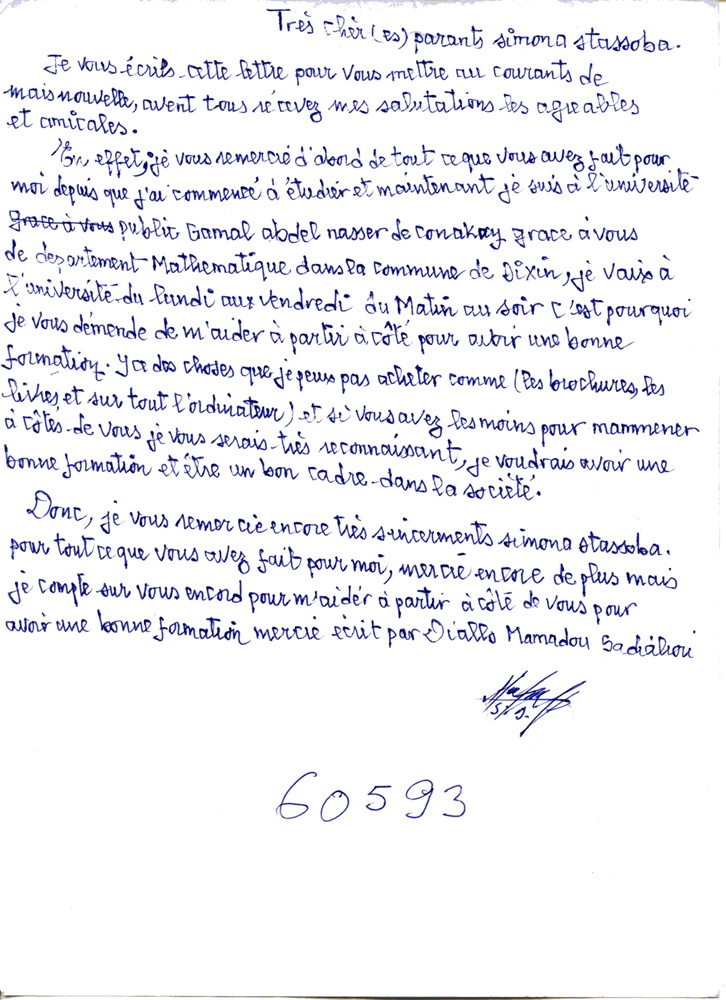 Très chèr(es) parants simona stassoba.
Je vous écris cette lettre pour vous mettre au courants de
mais nouvelle, avent tous récevez mes salutations les agreables
et amicales.
En effet, jé vous remercié d'abord de tout ce que vous avez fait pour
moi depuis que j'ai commencé à étudiér et maintenant jé suis à l'université
grace à vous public Gamal abdel nasser de conakry grace à vous
de departement Mathematique dans la commune de Dixin, jé vaix à
l'université du lundi aux vendredi du Matin au soir c'est pourquoi
je vous démende de m'aider à partir à côté pour avoir une bonne
formation. Y a des choses que je peux pas acheter comme (les brochures, les
livres, et sur tout l'ordinateur) et si vous avez les moins pour mammener
à côtés de vous jé vous serais très reconnaissant, je voudrais avoir une
bonne formation et être un bon cadre dans la société.
Donc, jé vous remercie encore très sincerments simona stassoba.
pour tout ce que vous avez fait pour moi, mercié encore de plus mais
je compte sur vous encord pour m'aidér à partir à côté de vous pour
avoir une bonne formation mercié écrit par Diallo Mamadou
60593